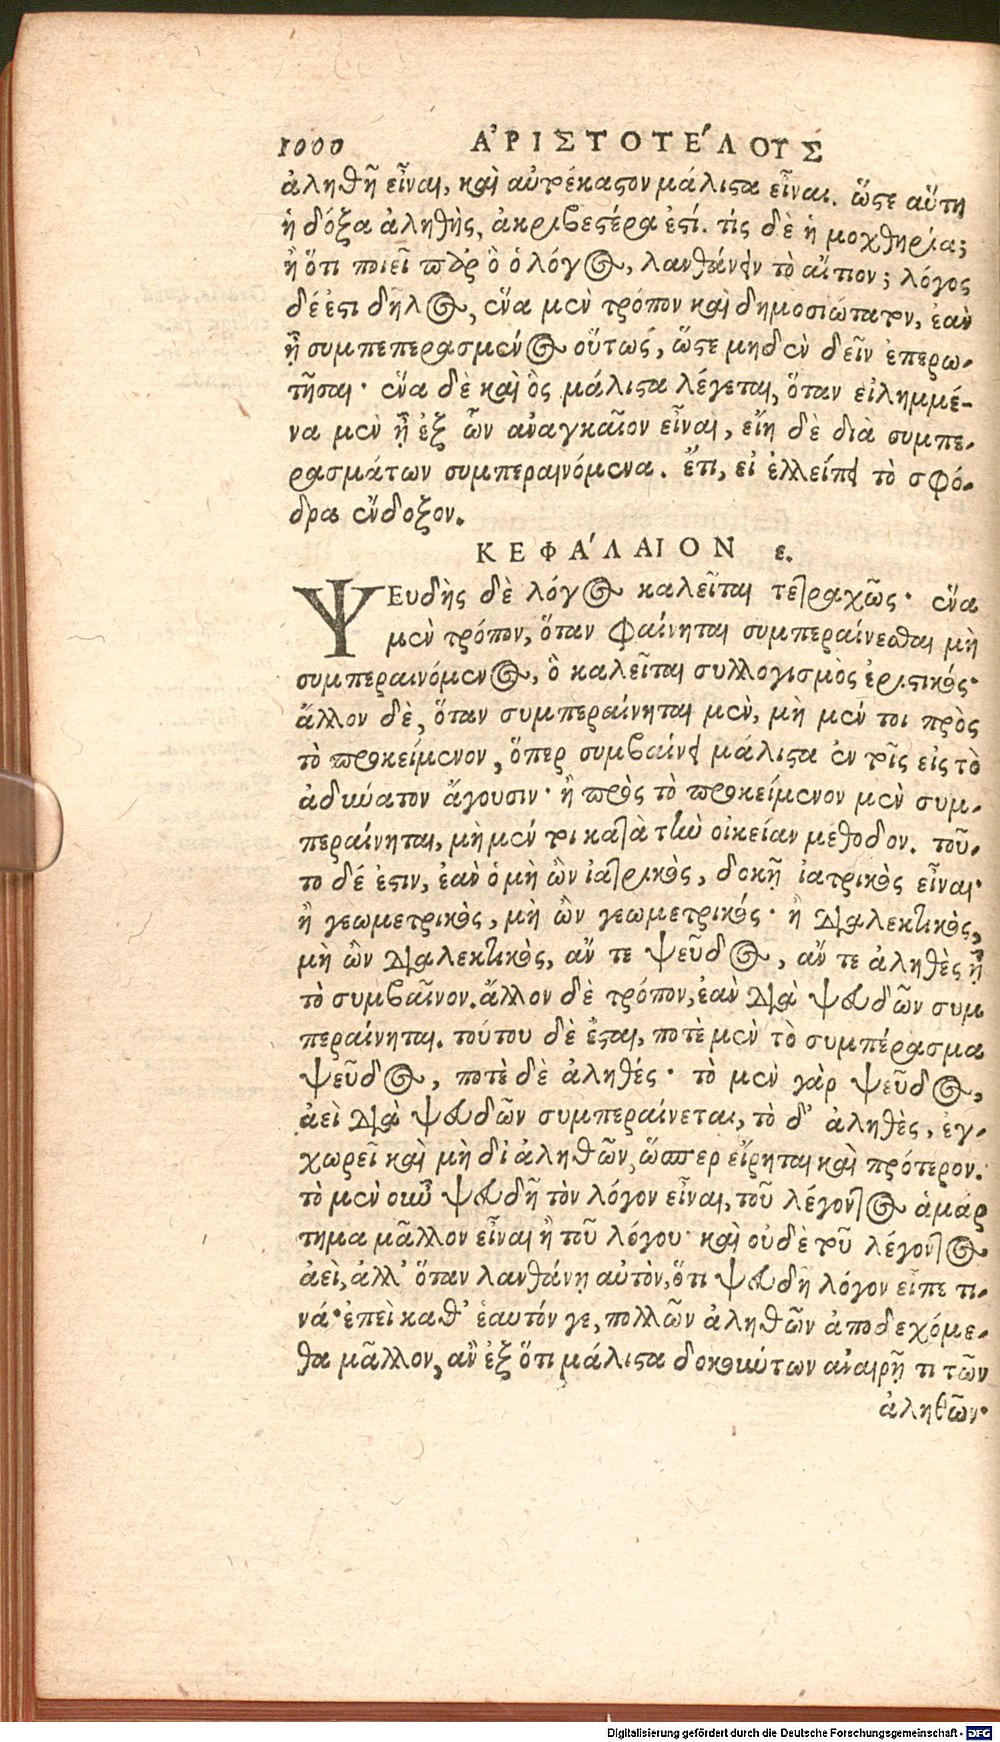 1000 ἈΡΙΣΤΟΤΈΛΟΥΣ
ἀληθῆ εἶναι, καὶ αὐτέκαστον μάλιστα εἶναι. ὥστε αὕτη
ἡ δόξα ἀληθὴς, ἀκριβεστέρα ἐστί. τίς δὲ ἡ μοχθηρία;
ἢ ὅτι ποιεῖ παρ ὃ ὁ λόγος, λανθάνειν τὸ αἴτιον; λόγος
δέ ἐστι δῆλος, ἕνα μὲν τρόπον καὶ δημοσιώτατον, ἐὰν
ᾖ συμπεπερασμένος οὕτως, ὥστε μηδὲν δεῖν ἐπερω-
τῆσαι· ἕνα δὲ καὶ ὃς μάλιστα λέγεται, ὅταν εἰλημμέ-
να μὲν ᾖ ἐξ ὧν ἀναγκαῖον εἶναι, εἴη δὲ διὰ συμπε-
ρασμάτων συμπεραινόμενα. ἔτι, εἰ ἐλλείπει τὸ σφό-
δρα ἔνδοξον.
ΚΕΦΆΛΑΙΟΝ ε.
ΨΕυδὴς δὲ λόγος καλεῖται τετραχῶς· ἕνα
μὲν τρόπον, ὅταν φαίνηται συμπεραίνεσθαι μὴ
συμπεραινόμενος, ὃ καλεῖται συλλογισμὸς ἐριστικός·
ἄλλον δὲ, ὅταν συμπεραίνηται μὲν, μὴ μέν τοι πρὸς
τὸ προκείμενον, ὅπερ συμβαίνει μάλιστα ἐν τοῖς εἰς τὸ
ἀδύνατον ἄγουσιν· ἢ πρὸς τὸ προκείμενον μὲν συμ-
περαίνηται, μὴ μέν τοι κατὰ τὴν οἰκείαν μέθοδον. τοῦ-
το δέ ἐστιν, ἐὰν ὁ μὴ ὢν ἰατρικὸς, δοκῇ ἰατρικὸς εἶναι·
ἢ γεωμετρικὸς, μὴ ὢν γεωμετρικός· ἢ διαλεκτικὸς,
μὴ ὢν διαλεκτικὸς, ἄν τε ψεῦδος, ἄν τε ἀληθὲς ᾖ
τὸ συμβαῖνον. ἄλλον δὲ τρόπον, ἐὰν διὰ ψευδῶν συμ
περαίνηται. τούτου δὲ ἔσται, ποτὲ μὲν τὸ συμπέρασμα
ψεῦδος, ποτὲ δὲ ἀληθές· τὸ μὲν γὰρ ψεῦδος,
ἀεὶ διὰ ψευδῶν συμπεραίνεται, τὸ δ' ἀληθὲς, ἐγ-
χωρεῖ καὶ μὴ δι ἀληθῶν, ὥσπερ εἴρηται καὶ πρότερον.
τὸ μὲν οὖν ψευδῆ τὸν λόγον εἶναι, τοῦ λέγοντος ἁμάρ
τημα μᾶλλον εἶναι ἢ τοῦ λόγου· καὶ οὐδὲ τοῦ λέγοντος
ἀεὶ, ἀλλ' ὅταν λανθάνῃ αὐτὸν, ὅτι ψευδῆ λόγον εἶπε τι-
νά· ἐπεὶ καθ' ἑαυτόν γε, πολλῶν ἀληθῶν ἀποδεχόμε-
θα μᾶλλον, ἂν ἐξ ὅτι μάλιστα δοκούντων ἀναιρῇ τι τῶν
ἀληθῶν·
Digitalisierung gefördert durch die Deutsche Forschungsgemeinschaft - DFG